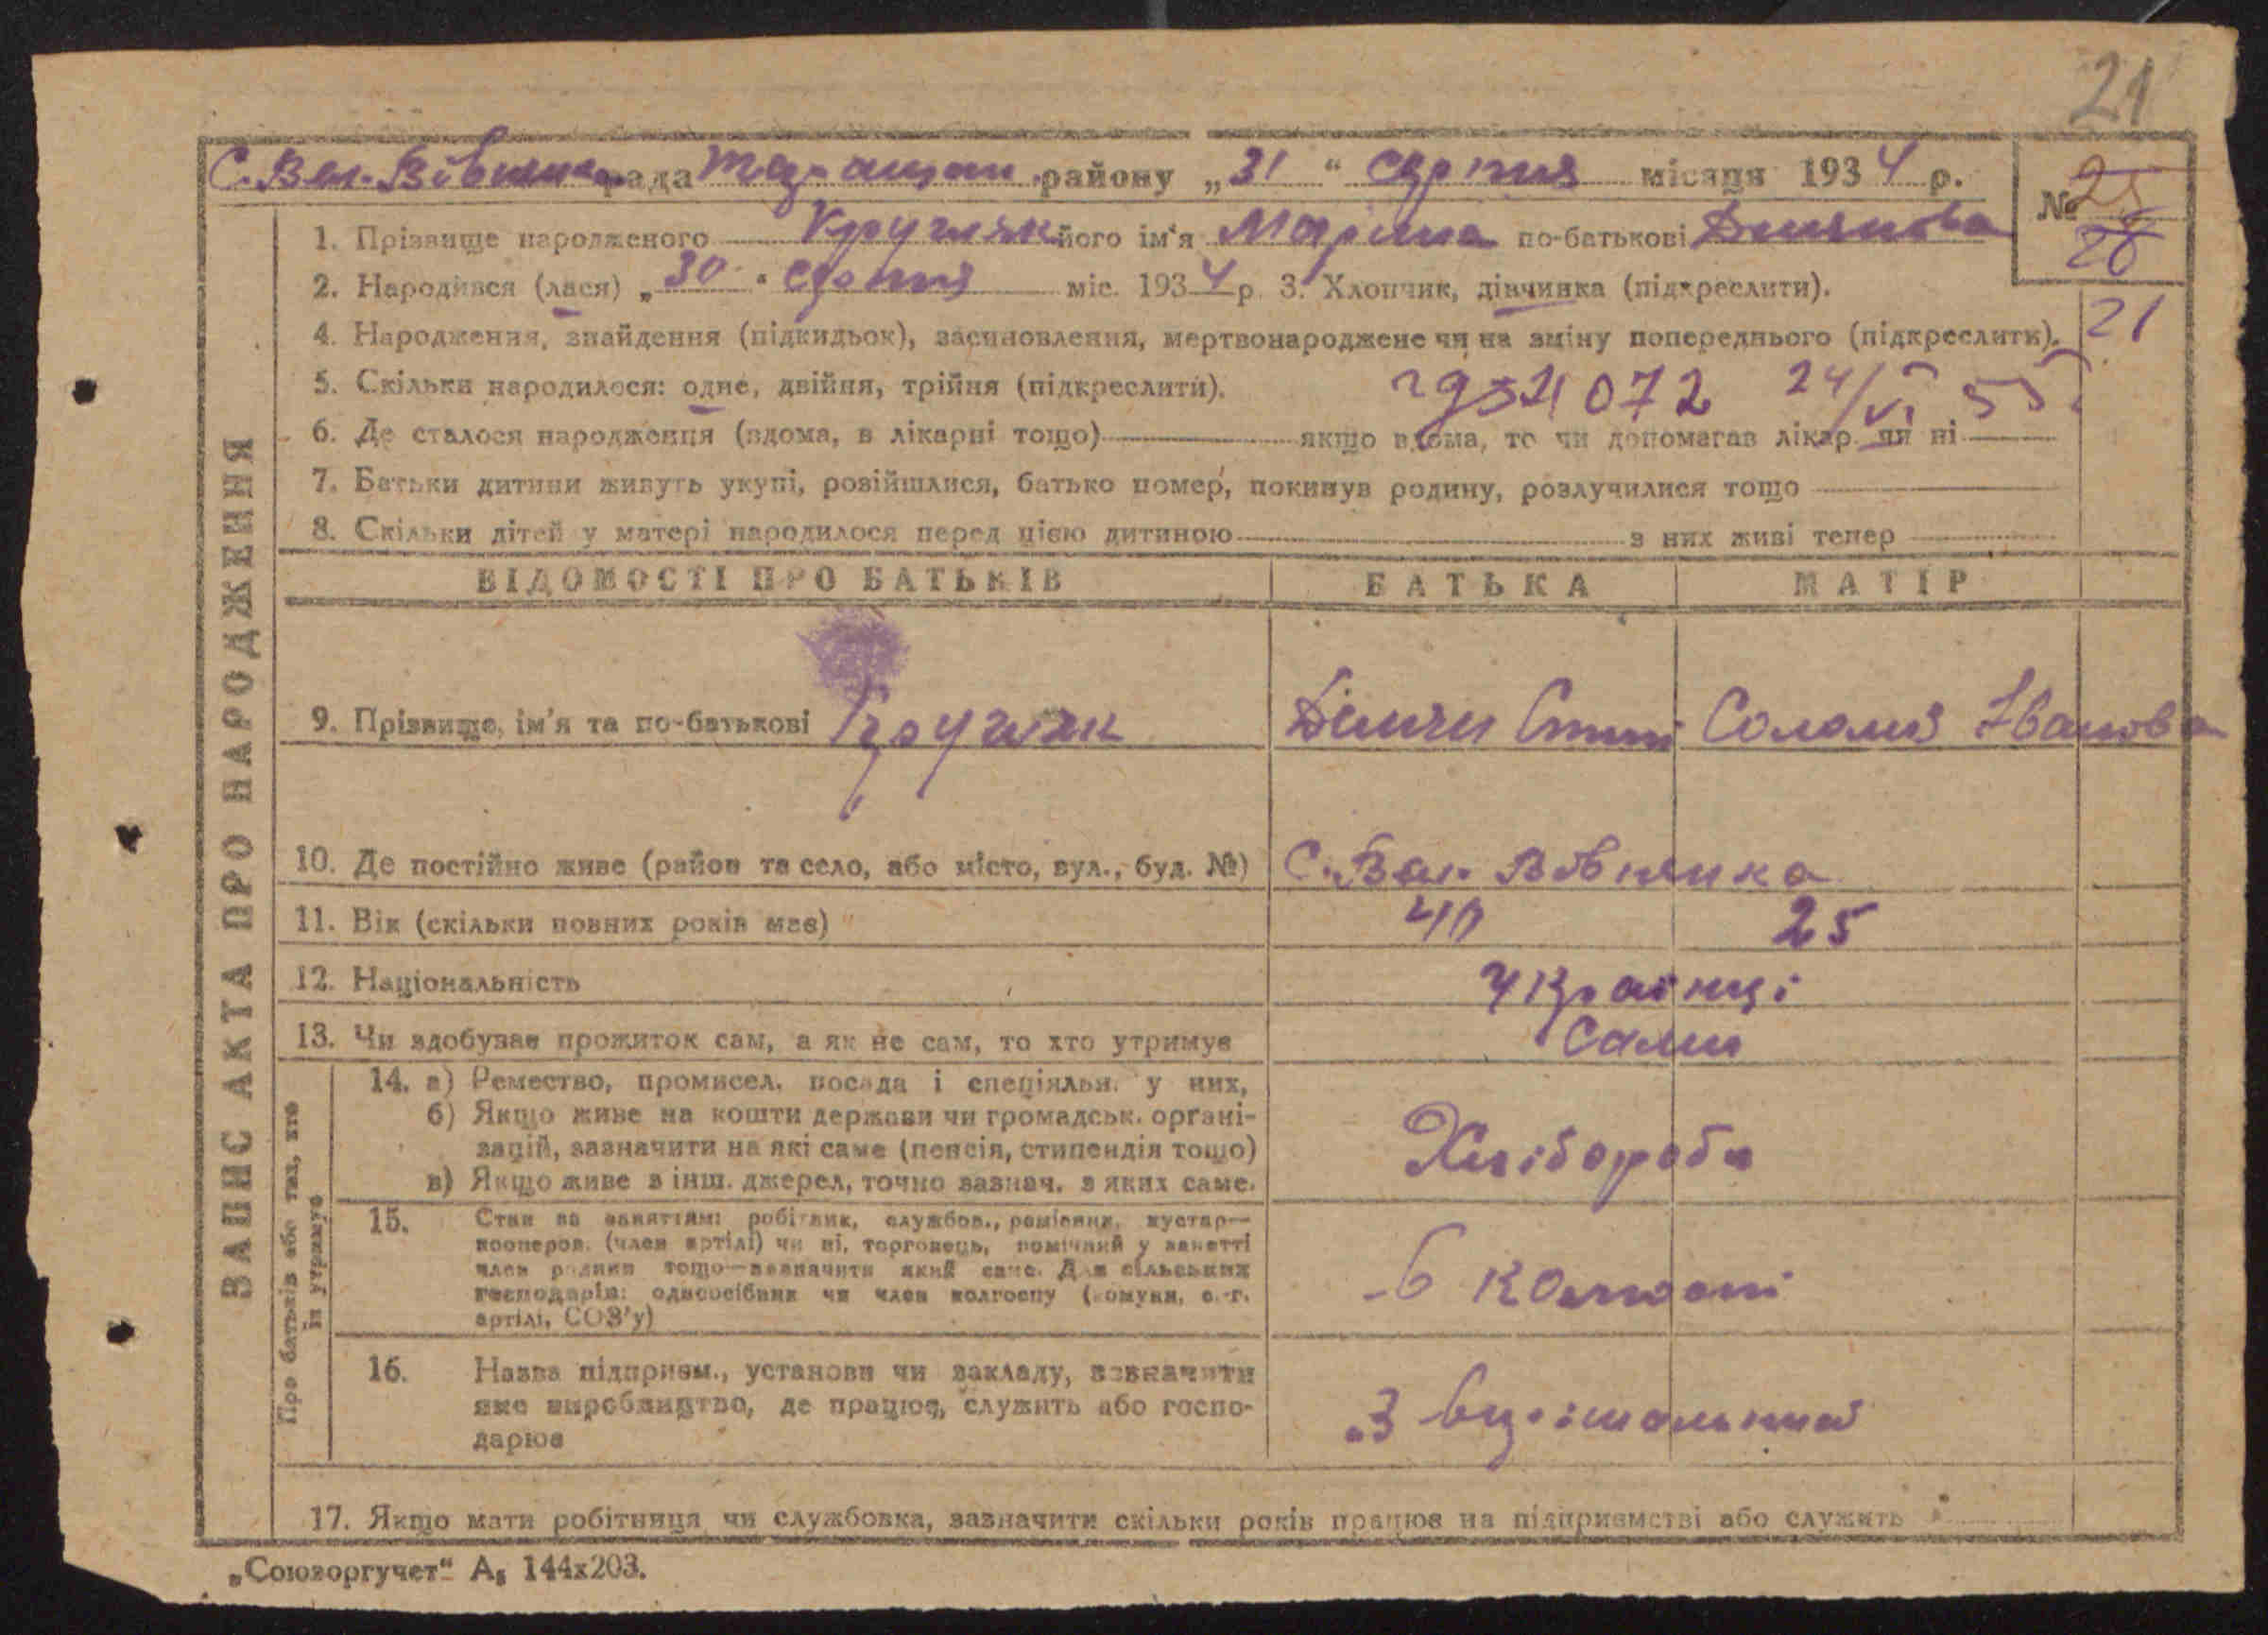 21
С. Вел. Вовнянка рада Таращан. району „31“ серпня місяця 1934 р.
№ 25
26
21
1. Прізвище народженого Кругляк його ім'я Марина по-батькові
2. Народився (лася) „30“ серпня міс. 1934 р. 3. Хлопчик, дівчинка (підкреслити).
4. Народження, знайдення (підкидьок), засиновлення, мертвонароджене чи на зміну попереднього (підкреслити).
5. Скільки народилося: одне, двійня, трійня (підкреслити).
072 24/VI 55
6. Де сталося народження (вдома, в лікарні тощо) якщо вдома, то чи допомагав лікар чи ні
7. Батьки дитини живуть укупі, розійшлися, батько помер, покинув родину, розлучилися тощо
8. Скільки дітей у матері народилося перед цією дитиною з них живі тепер
ЗАПИС АКТА ПРО НАРОДЖЕННЯ
ВІДОМОСТІ ПРО БАТЬКІВ БАТЬКА МАТІР
9. Прізвище, ім'я та по-батькові Кругляк Соломія Іванова
10. Де постійно живе (район та село, або місто, вул., буд. №) С. Вел. Вовнянка
11. Вік (скільки повних років має) 40 25
12. Національність Українці
13. Чи здобуває прожиток сам, а як не сам, то хто утримує Сами
Про батьків або тих, хто їх утримує
14. а) Ремество, промисел, посада і спеціяльн. у них,
б) Якщо живе на кошти держави чи громадськ. органі-
зацій, зазначити на які саме (пенсія, стипендія тощо)
в) Якщо живе з інш. джерел, точно зазнач. з яких саме.
Хлібороби
15. Стан за заняттям: робітник, службов., ремісник, кустар—
кооперов. (член артілі) чи ні, торговець, помічний у занятті
член родини тощо—зазначити який саме. Для сільських
господарів: одноосібник чи член колгоспу (комуни, с.-г.
артілі, СОЗ'у)
В колгоспі
16. Назва підприєм., установи чи закладу, зазначити
яке виробництво, де працює, служить або госпо-
дарює
17. Якщо мати робітниця чи службовка, зазначити скільки років працює на підприємстві або служить
„Союзоргучет“ А₅ 144х203.